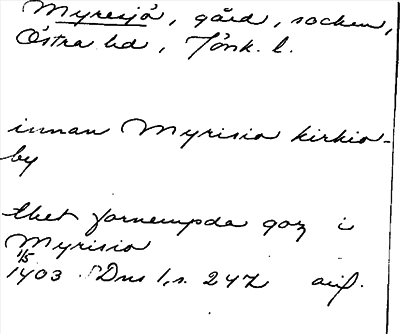 Myresjö, gård, socken,
Östra hd, Jönk. l.
innan Myrisio kirkio-
by
thet fornempda goz i
Myrisio
1/5
1403 Dns 1, s. 247 avs.